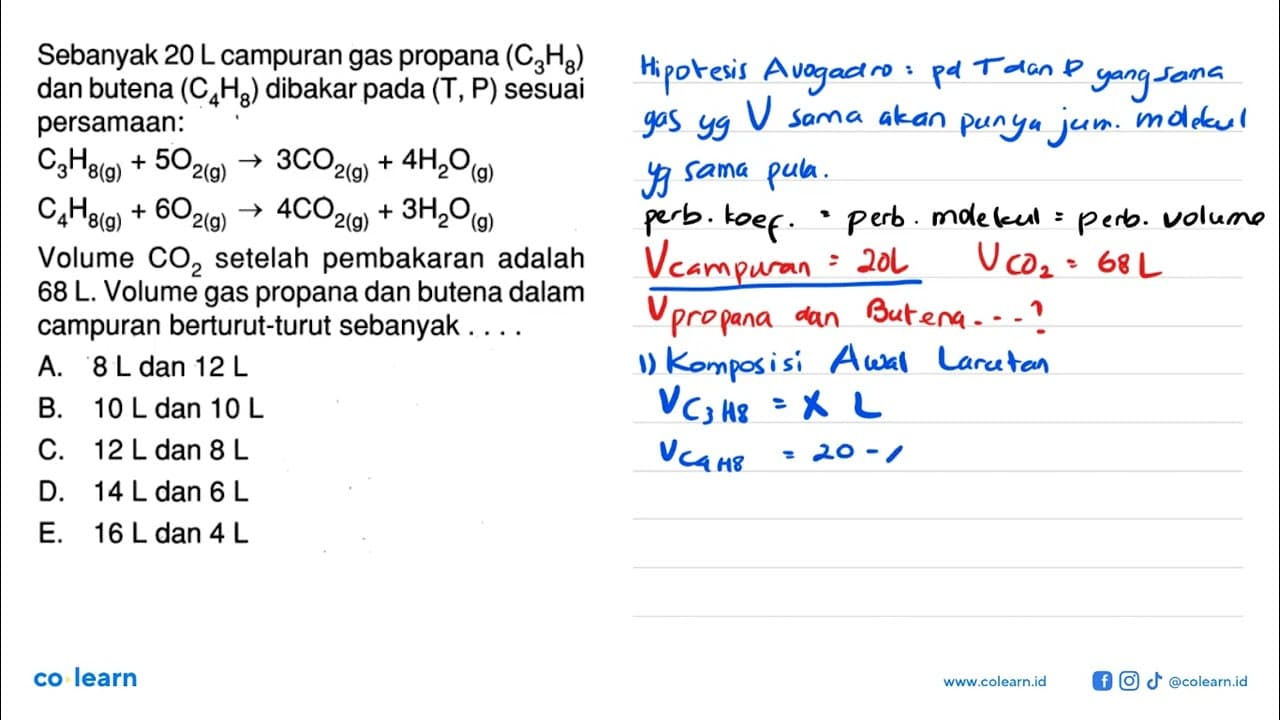 Sebanyak 20 L campuran gas propana (C₃H₈)
dan butena (C₄H₈) dibakar pada (T, P) sesuai
persamaan:
C₃H₈(g) + 5O₂(g) → 3CO₂(g) + 4H₂O(g)
C₄H₈(g) + 6O₂(g) → 4CO₂(g) + 3H₂O(g)
Volume CO₂ setelah pembakaran adalah
68 L. Volume gas propana dan butena dalam
campuran berturut-turut sebanyak . . . .
A. 8 L dan 12 L
B. 10 L dan 10 L
C. 12 L dan 8 L
D. 14 L dan 6 L
E. 16 L dan 4 L
Hipotesis Avogadro : pd T dan P yang sama
gas yg V sama akan punya jum. molekul
yg sama pula.
perb. koef. = perb. molekul = perb. volume
Vcampuran = 20L VCO₂ = 68 L
Vpropana dan Butena...?
1) Komposisi Awal Larutan
VC₃H₈ = X L
VC₄H₈ = 20 -
co learn
www.colearn.id
@colearn.id